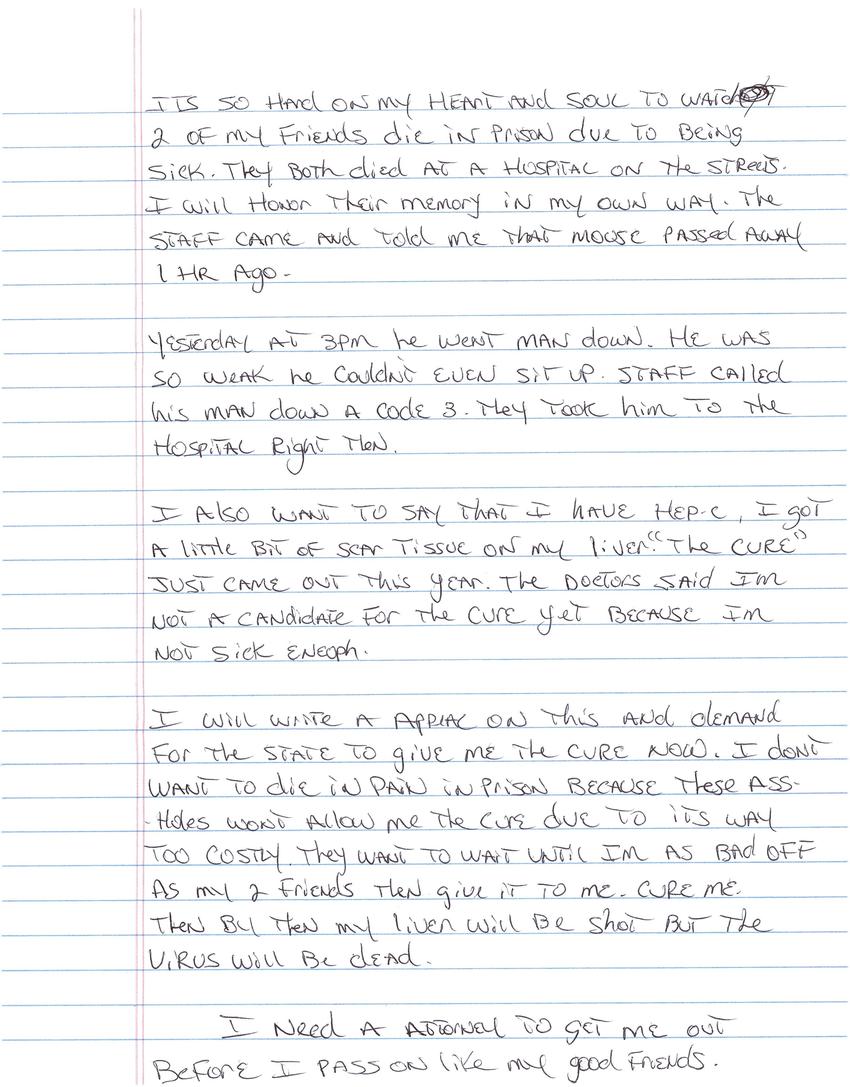 ITS SO HARD ON MY HEART AND SOUL TO WATCH
2 OF MY FRIENDS die IN PRISON due TO BEING
SICK. They BOTH died AT A HOSPITAL ON The STREETS.
I will HONOR Their MEMORY IN MY OWN WAY. The
STAFF CAME AND Told ME THAT MOUSE PASSED AWAY
1 HR AgO-
YESTERDAY AT 3PM he WENT MAN down. HE WAS
SO WEAK he Couldn't EVEN SIT UP. STAFF CALLED
his MAN down A Code 3. They TOOK him TO The
HOSPITAL Right THEN.
I Also WANT TO SAY THAT I HAVE HEP-C, I got
A little BIT OF SCAR TISSUE ON MY liver. "The CURE"
JUST CAME OUT This YEAR. The DOCTORS SAid IM
NOT A CANDIDATE FOR The CURE YET BECAUSE IM
NOT SICK ENEOPH.
I will WRITE A APPEAL ON This AND dEMAND
FOR The STATE TO give ME The CURE NOW. I dONT
WANT TO die IN PAIN IN PRISON BECAUSE These ASS-
-Holes WONT Allow me The Cure due TO ITS WAY
TOO COSTLY. They WANT TO WAIT UNTIL IM AS BAD OFF
AS MY 2 FRIENDS THEN give IT TO ME. CURE ME.
THEN BY THEN MY liver will BE Shot BUT The
VIRUS Will BE dEAD.
I NEED A ATTORNEY TO GET ME OUT
BEFORE I PASS ON like MY good FRIENDS.